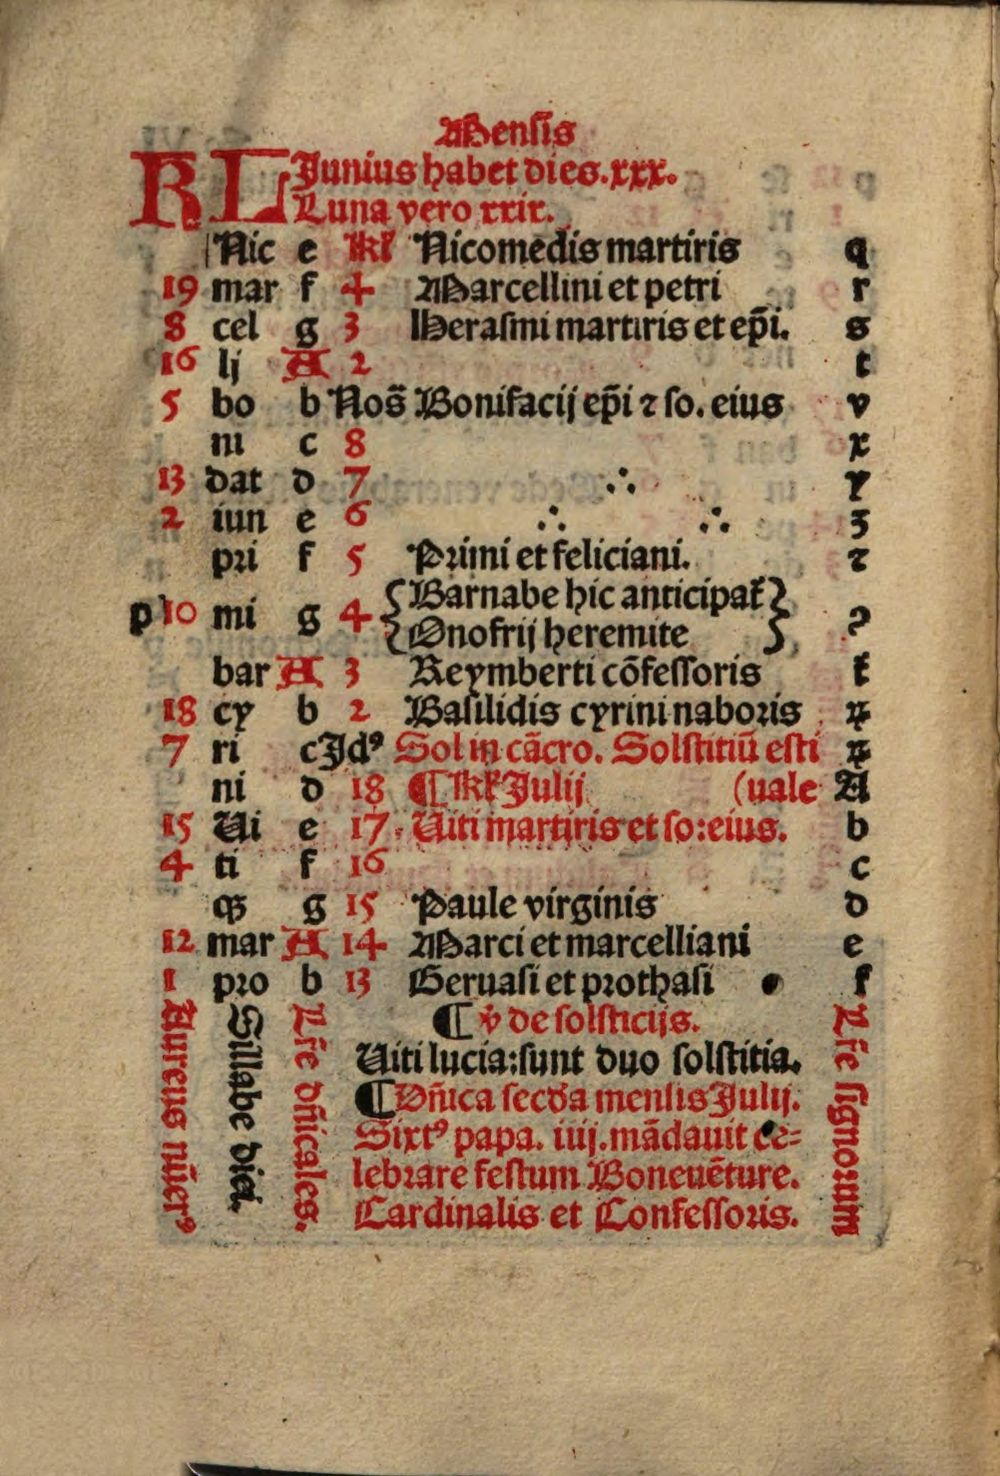 Mensis
KL Junius habet dies.xxx.
Luna vero xxix.
Nic e kł Nicomedis martiris q
19 mar f 4 Marcellini et petri r
8 cel g 3 Herasmi martiris et ep̃i. s
16 lj A 2 t
5 bo b Nos̃ Bonifacij ep̃i ⁊ so. eius v
ni c 8 x
13 dat d 7 ∴ y
2 iun e 6 ∴ ∴ ʒ
pri f 5 Primi et feliciani. ⁊
p 10 mi g 4 {Barnabe hic anticipat̃} ꝯ
{Onofrij heremite }
bar A 3 Reymberti cõfessoris ł
18 cy b 2 Basilidis cyrini naboris ꝝ
7 ri c Jdꝰ Sol in cãcro. Solstitiũ esti ꝝ
ni d 18 ¶ kł Julij (uale A
15 Ui e 17 Uiti martiris et so: eius. b
4 ti f 16 c
qꝫ g 15 Paule virginis d
12 mar A 14 Marci et marcelliani e
1 pro b 13 Geruasi et prothasi f
¶ ṽ de solsticijs.
Uiti lucia: sunt duo solstitia.
¶ Dñica secũda mensis Julij.
Sixtꝰ papa. iiij. mãdauit ce=
lebrare festum Boneuẽture.
Cardinalis et Confessoris.
Aureus nũerꝰ
Sillabe diei.
Lr̃e dñicales.
Lr̃e signorum